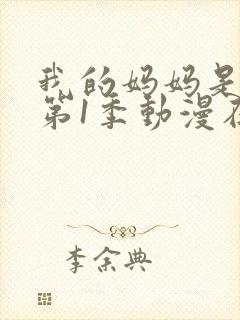 我的妈妈是
第1季動漫在
李余典